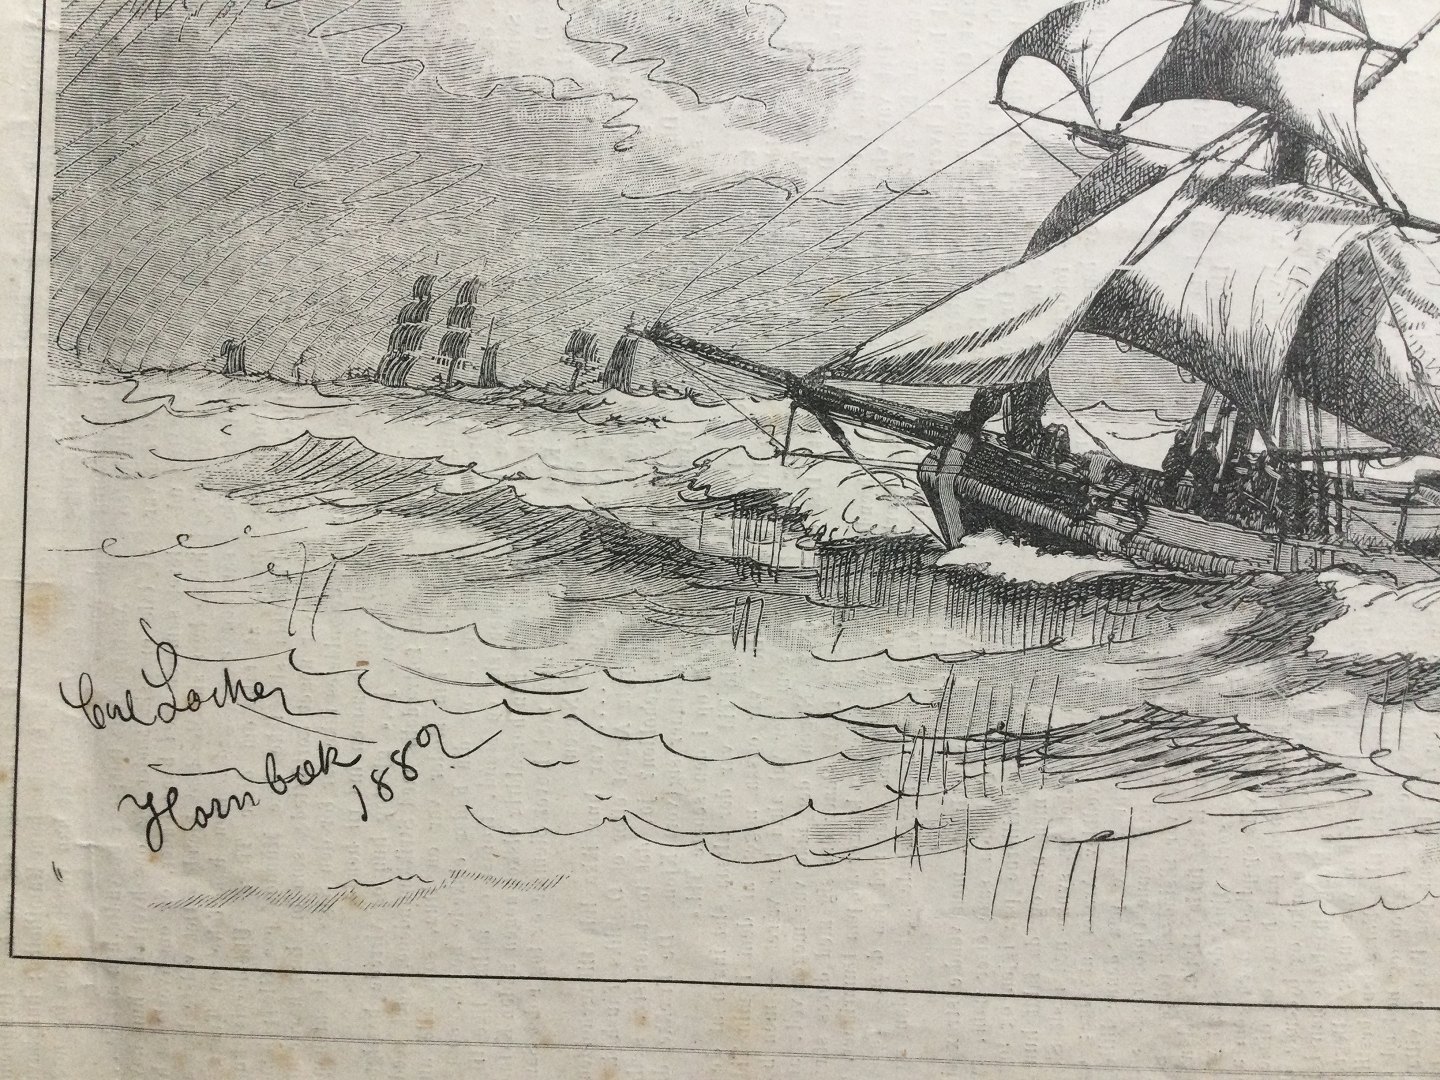 Carl Locher
Hornbæk
1882